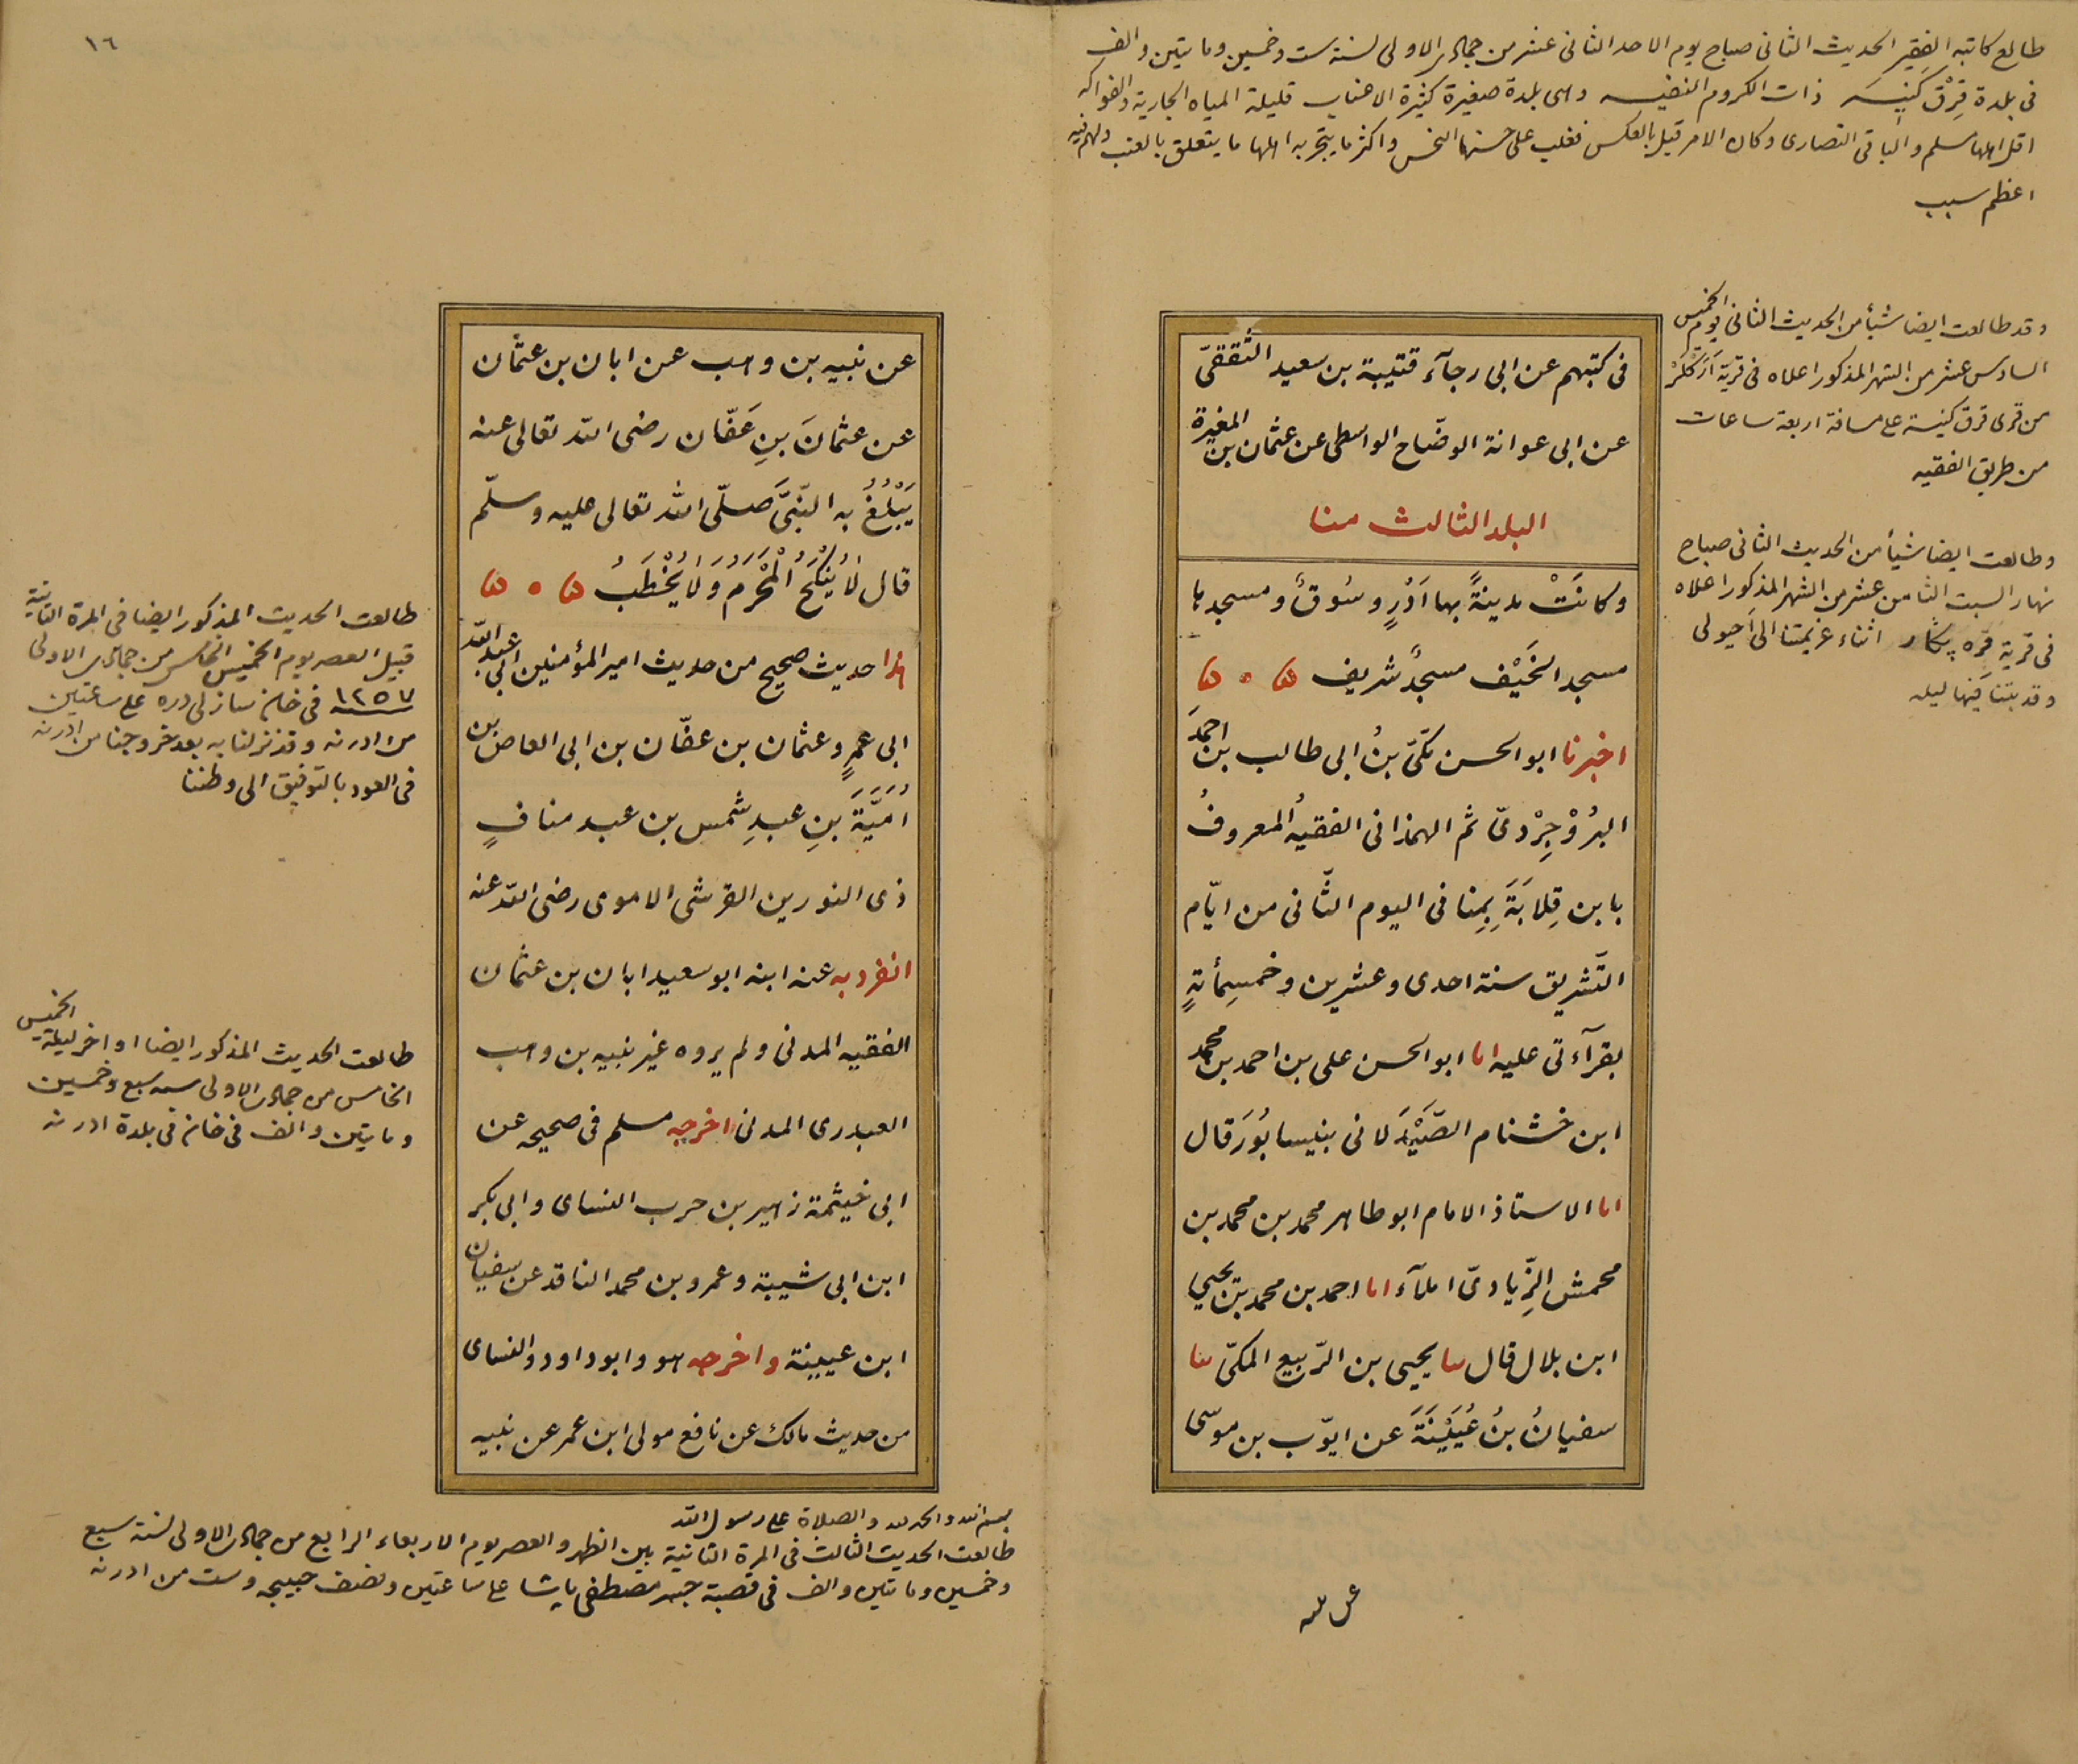 طالع كاتبه الفقير الحديث الثانى صباح يوم الاحد الثانى عشر من جمادى الاولى لسنة ست وخمسين ومايتين والف
فى بلدة قرق كنيسه ذات الكروم النفيسه وهى بلدة صغيرة كثيرة الاعناب قليلة المياه الجارية والفواكه
اقل اهلها مسلم والباقى النصارى وكان الامر قبل بالعكس فغلب على حسنها النحس واكثر ما يتجر به اهلها ما يتعلق بالعنب ولهم فيه
اعظم سبب
وقد طالعت ايضا شيأ من الحديث الثانى يوم الخميس
السادس عشر من الشهر المذكور اعلاه فى قرية
من قرى قرق كنيسة على مسافة اربعة ساعات
من طريق الفقيه
وطالعت ايضا شيأ من الحديث الثانى صباح
نهار السبت الثامن عشر من الشهر المذكور اعلاه
فى قرية قره پڭار اثناء عزيمتنا الى احيولى
وقد بتنا فيها ليله
فى كتبهم عن ابى رجآء قتيبة بن سعيد الثقفىّ
عن ابى عوانة الوضّاح الواسطى عن عثمان بن المغيرة
البلد الثالث منا
وكانَتْ مدينةً بها اَدُرٍ وسُوقٌ ومسجدها
مسجد الخَيْف مسجدٌ شريف ه ۰ ه
اخبرنا ابو الحسن مكّىّ بنُ ابى طالب بن احمدَ
البرُوْجِرْدىّ ثم الهمذانى الفقيهُ المعروفُ
بابن قِلابَةَ بِمِنا فى اليوم الثّانى من ايّام
التّشريق سنة احدى وعشرين وخمسِمأىةٍ
بقرآءتى عليه انا ابو الحسن على بن احمد بن محمد
ابن خشنام الصَّيْدَلانى بنيسابُورَ قال
انا الاستاذ الامام ابو طاهر محمد بن محمد بن
محمش الزّيادىّ املآءً انا احمد بن محمد بن يحيى
ابن بلال قال ىنا يحيى بن الرّبيع المكىّ ىنا
سفيانُ بنُ عُيَيْنَةَ عن ايّوب بن موسى
١٦
عن نبيه بن وهب عن ابان بن عثمان
عن عثمانَ بنِ عَفّان رضى اللّه تعالى عنه
يَبْلُغُ به النّبىَّ صَلّى اللّه تعالى عليه وسلّم
قال لاَ يُنْكَحُ الْمُحْرِمُ وَلَا يُخْطَبُ ه ۰ ه
هذا حديث صحيح من حديث امير المؤمنين ابى عبد اللّه
ابى عمرٍو عثمان بن عفّان بن ابى العاص بن
اُمَيَّةَ بنِ عبدِ شمس بن عبد منافٍ
ذى النورين القرشى الاموى رضى اللّه عنه
انفرد به عنه ابنه ابو سعيد ابان بن عثمان
الفقيه المدنى ولم يروه غير نبيه بن وهب
العبدرى المدنى اخرجه مسلم فى صحيحه عن
ابى خيثمة زهير بن حرب النساى وابى بكر
ابن ابى شيبة وعمرو بن محمد الناقد عن سفيان
ابن عيينة واخرجه هو وابو داود والنساى
من حديث مالك عن نافع مولى ابن عمر عن نبيه
طالعت الحديث المذكور ايضا فى المرة الثانية
قبيل العصر يوم الخميس الخامس من جمادى الاولى
١٢٥٧ فى خان سازلى دره على ساعتين
من ادرنه وقد نزلنا به بعد خروجنا من ادرنه
فى العود بالتوفيق الى وطننا
طالعت الحديث المذكور ايضا اواخر ليلة الخميس
الخامس من جمادى الاولى سنه سبع وخمسين
ومايتين والف فى خان فى بلدة ادرنه
بسم الله والحمد لله والصلاة على رسول الله
طالعت الحديث الثالث فى المرة الثانية بين الظهر والعصر يوم الاربعاء الرابع من جمادى الاولى لسنة سبع
وخمسين ومايتين والف فى قصبة جسر مصطفى پاشا على ساعتين ونصف من ادرنه